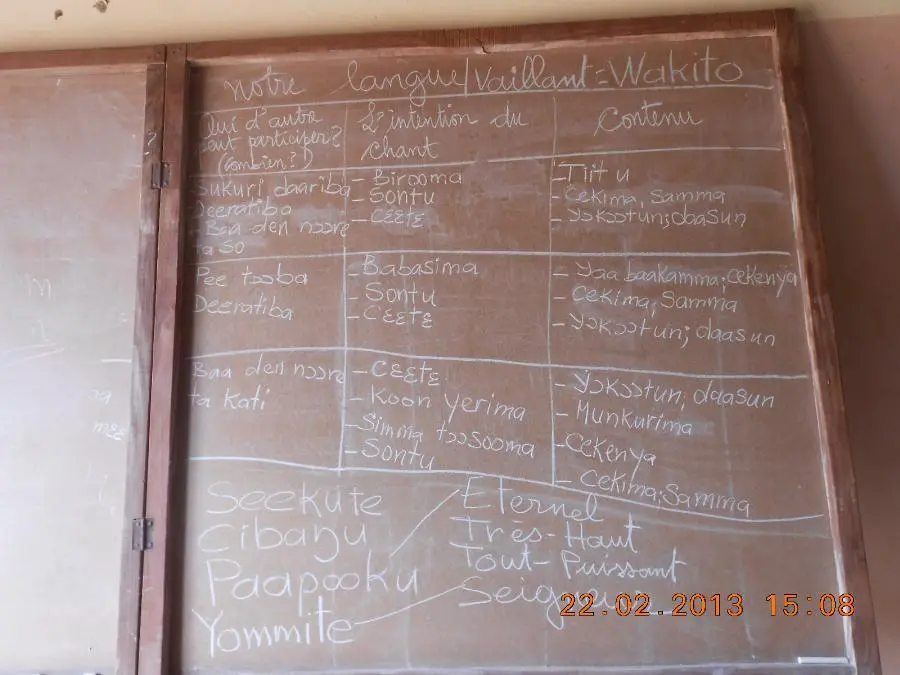 notre langue/Vaillant=Wakito
Qui d'autre
peut participer?
(Combien?)
L'intention du
chant
Contenu
Sukuri daariba
Deeratiba
- Baa den nɔɔre
ta so
- Birooma
- Sontu
- Cɛɛtɛ
- Tiitu
- Cekima, Samma
- Yɔkɔɔtun; daasun
Pee tɔɔba
Deeratiba
- Babasima
- Sontu
- Cɛɛtɛ
- Yaa baakamma; cekenya
- Cekima; Samma
- Yɔkɔɔtun; daasun
Baa den nɔɔre
ta kati
- Cɛɛtɛ
- Koon yerima
- Simma tɔɔsooma
- Sontu
- Yɔkɔɔtun, daasun
- Munkurima
- Cekenya
- Cekima; Samma
Seekute
Cibaŋu
Paapooku
Yommite
Eternel
Très-Haut
Tout-Puissant
Seigneur
22.02.2013 15:08